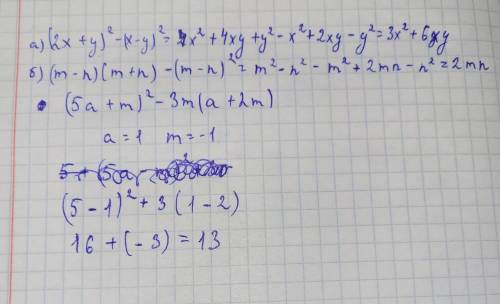 а) (2x + y)² - (x - y)² = 4x² + 4xy + y² - x² + 2xy - y² = 3x² + 6xy
б) (m - n)(m + n) - (m - n)² = m² - n² - m² + 2mn - n² = 2mn
• (5a + m)² - 3m(a + 2m)
a = 1 m = -1
(5 - 1)² + 3(1 - 2)
16 + (-3) = 13